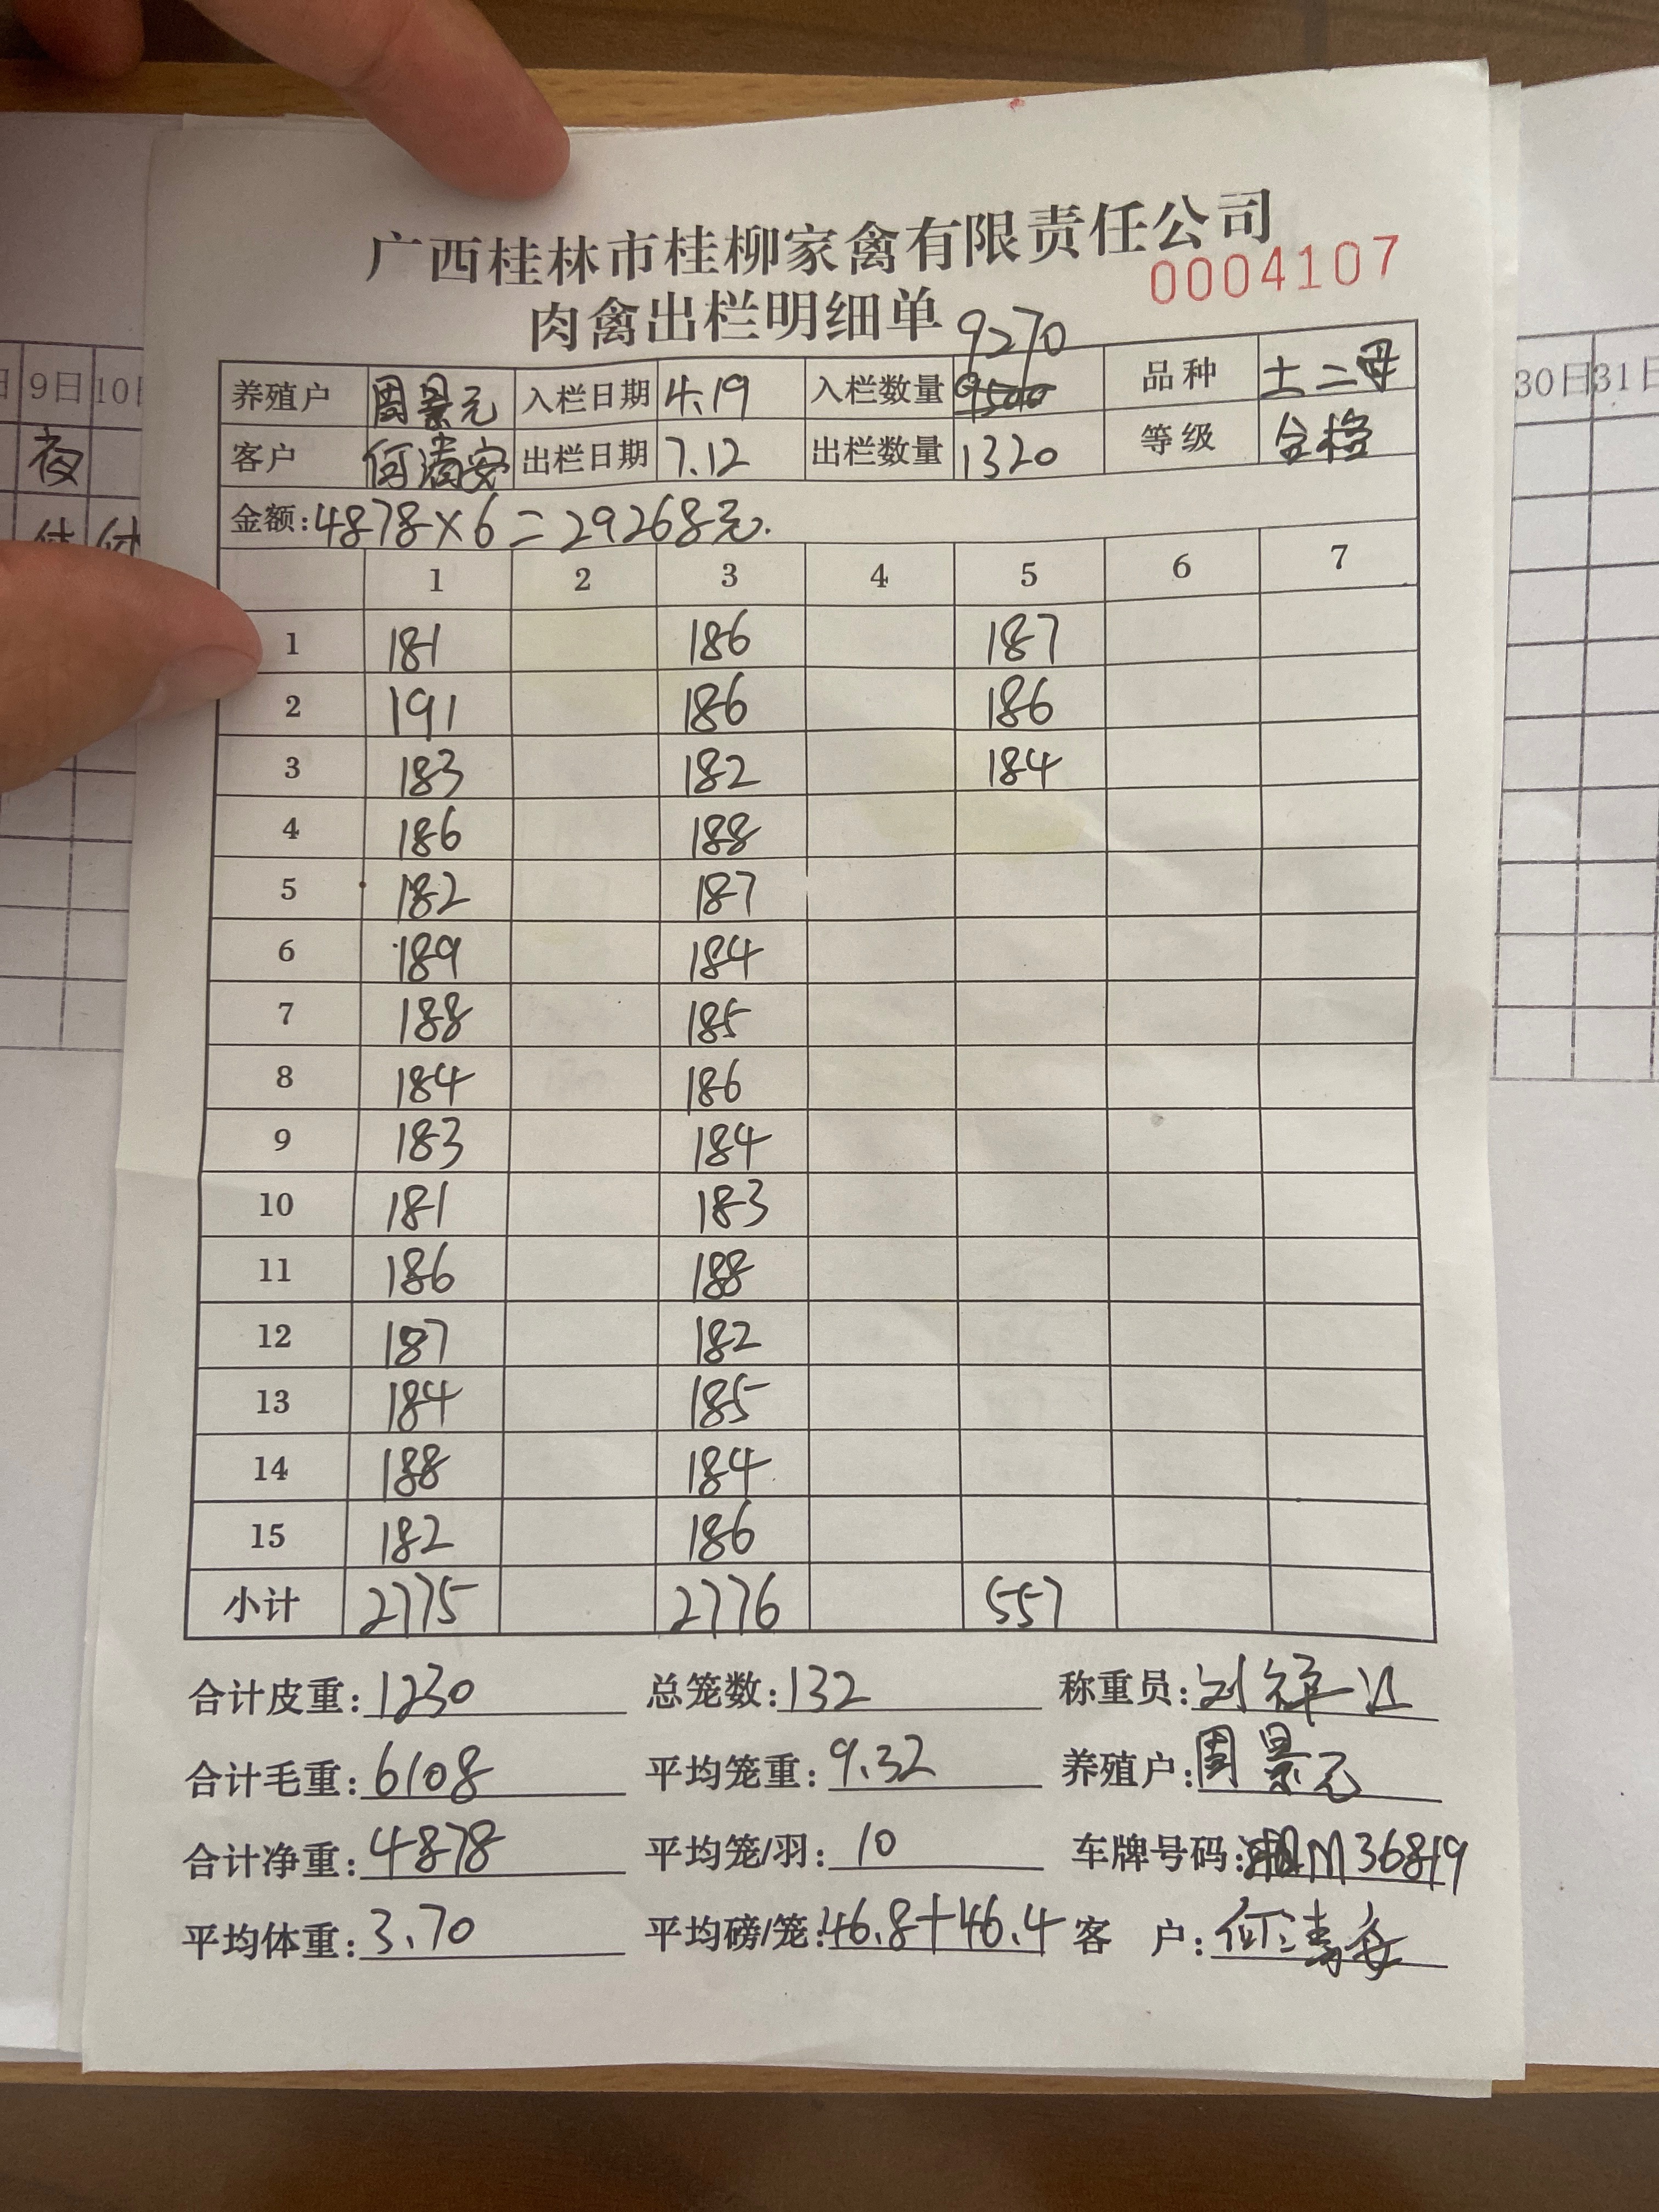 广西桂林市桂柳家禽有限责任公司
0004107
肉禽出栏明细单
9270
养殖户 周景元 入栏日期 4.19 入栏数量 9500 品种 土二母
客户 何清安 出栏日期 7.12 出栏数量 1320 等级 合格
金额:4878×6=29268元.
1 2 3 4 5 6 7
1 181 186 187
2 191 186 186
3 183 182 184
4 186 188
5 182 187
6 189 184
7 188 185
8 184 186
9 183 184
10 181 183
11 186 188
12 187 182
13 184 185
14 188 184
15 182 186
小计 2775 2776 557
合计皮重:1230 总笼数:132 称重员:刘
合计毛重:6108 平均笼重:9.32 养殖户:周景元
合计净重:4878 平均笼/羽:10 车牌号码:湘M36849
平均体重:3.70 平均磅/笼:46.8+46.4 客 户:何清安
9日 10日
夜
30日 31日